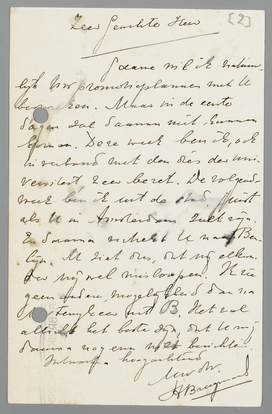 [2]
Zeer Geachte Heer
Gaarne wil ik natuur-
lijk Uw promotieplannen met U
bespreken. Maar in de eerste
dagen zal daarvan niet kunnen
komen. Deze week ben ik, ook
in verband met den dies der uni-
versiteit zeer bezet. De volgende
week ben ik uit de stad, juist
als U in Amsterdam zult zijn.
En daarna vertrekt U naar Ber-
lijn. U ziet dus, dat wij elkan-
der nog wel mislopen. Ik zie
geen andere mogelijkheid dan na
uit B. Het zal
het beste zijn, dat U mij
daarna nog eens wilt berichten
hoogachtend
Uw Dw.